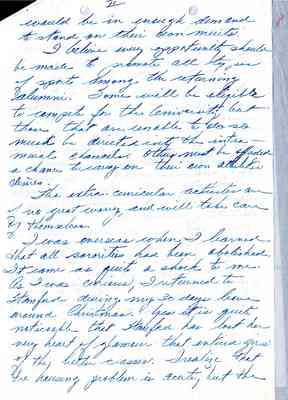 II
would be in enough demand
to stand on their own merits.
I believe every opportunity should
be made to promote all types
of sports among the returning
alumni. Some will be eligible
to compete for the University but
those that are unable to do so
must be directed into the intra-
mural channels. Others must be afforded
a chance to carry on their own athletic
desires.
The extra curricular activities are
of no great worry and will take care
of themselves.
I was overseas when I learned
that all sororities had been abolished.
It came as quite a shock to me.
As I was curious, I returned to
Stanford during my 30 days leave
around Christmas. Yes it is quite
noticeable that Stanford has lost her
very heart of glamour that entices girls
of the better classes. I realize that
the housing problem is acute, but the